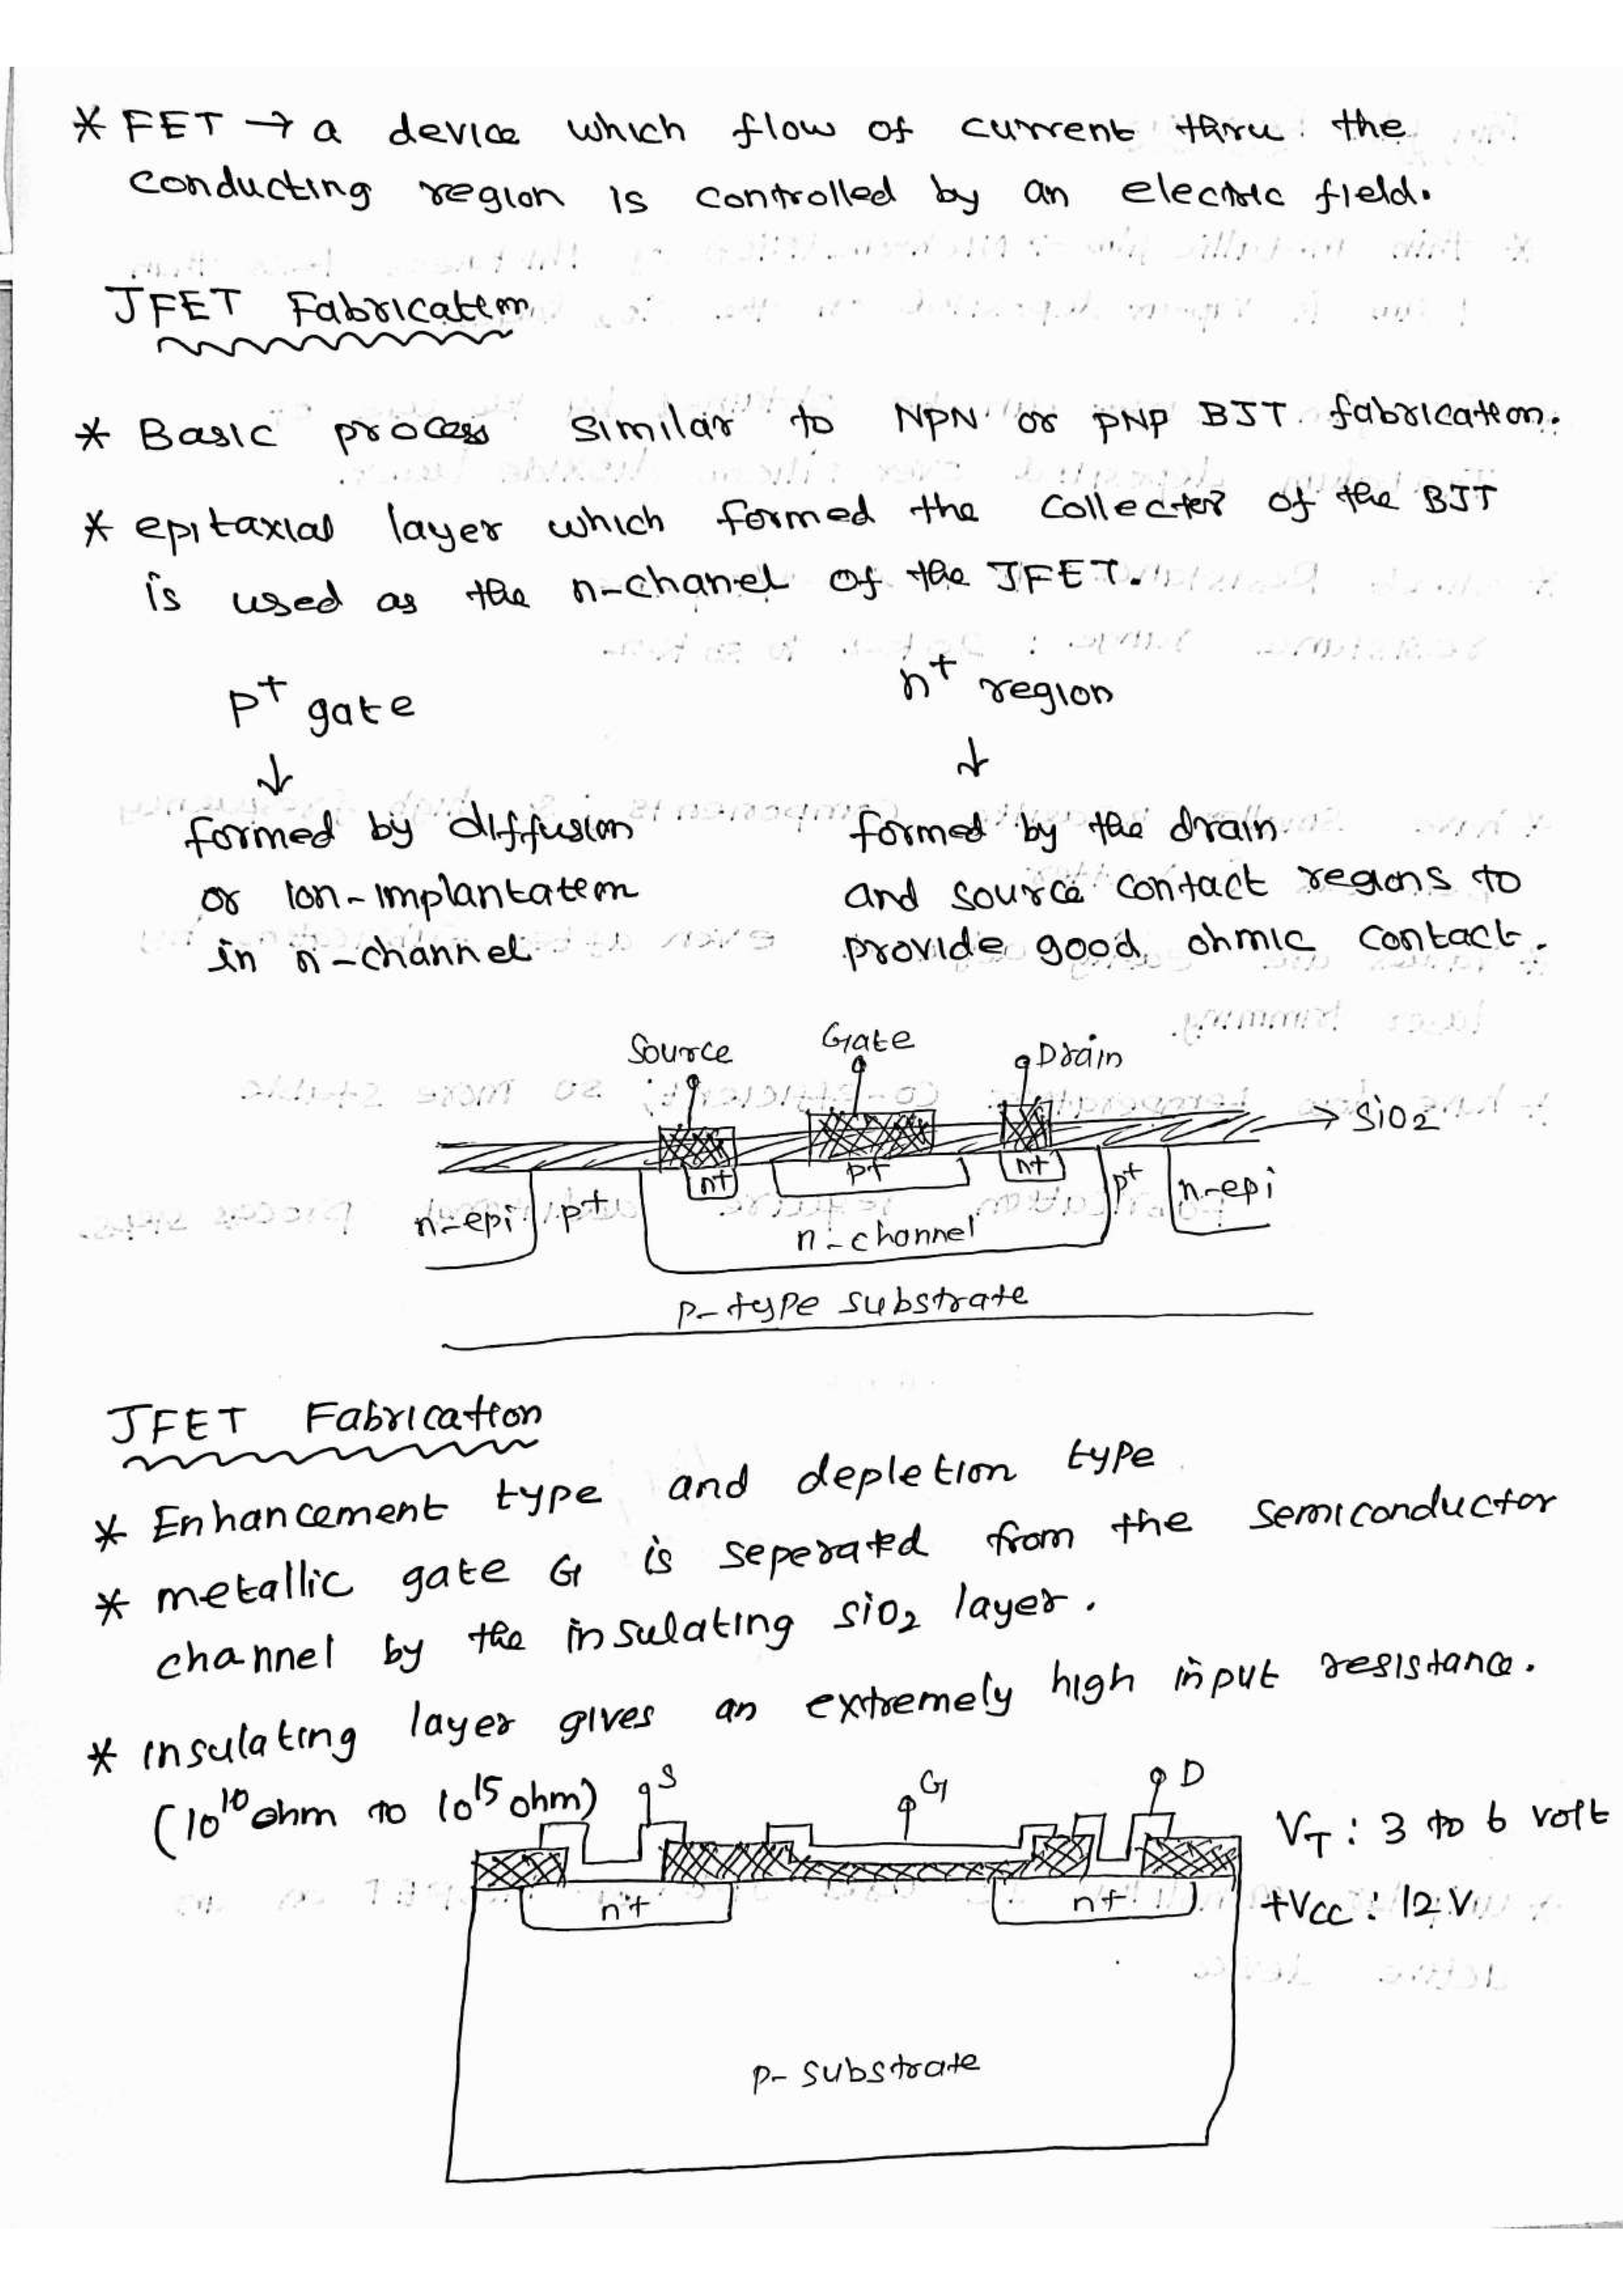 * FET → a device which flow of current thru the
conducting region is controlled by an electric field.
JFET Fabrication
* Basic process similar to NPN or PNP BJT fabrication.
* epitaxial layer which formed the collector of the BJT
is used as the n-chanel of the JFET.
p+ gate
↓
formed by diffusion
or ion-implantation
in n-channel
n+ region
↓
formed by the drain
and source contact regions to
provide good ohmic contact.
Source Gate Drain
→ SiO2
n+ p+ n+
n-epi p+ n-channel p+ n-epi
p-type substrate
JFET Fabrication
* Enhancement type and depletion type
* metallic gate G is seperated from the semiconductor
channel by the insulating SiO2 layer.
* insulating layer gives an extremely high input resistance.
(10^10 ohm to 10^15 ohm)
S G D
VT : 3 to 6 volt
n+ n+
+VCC : 12 V
p-substrate